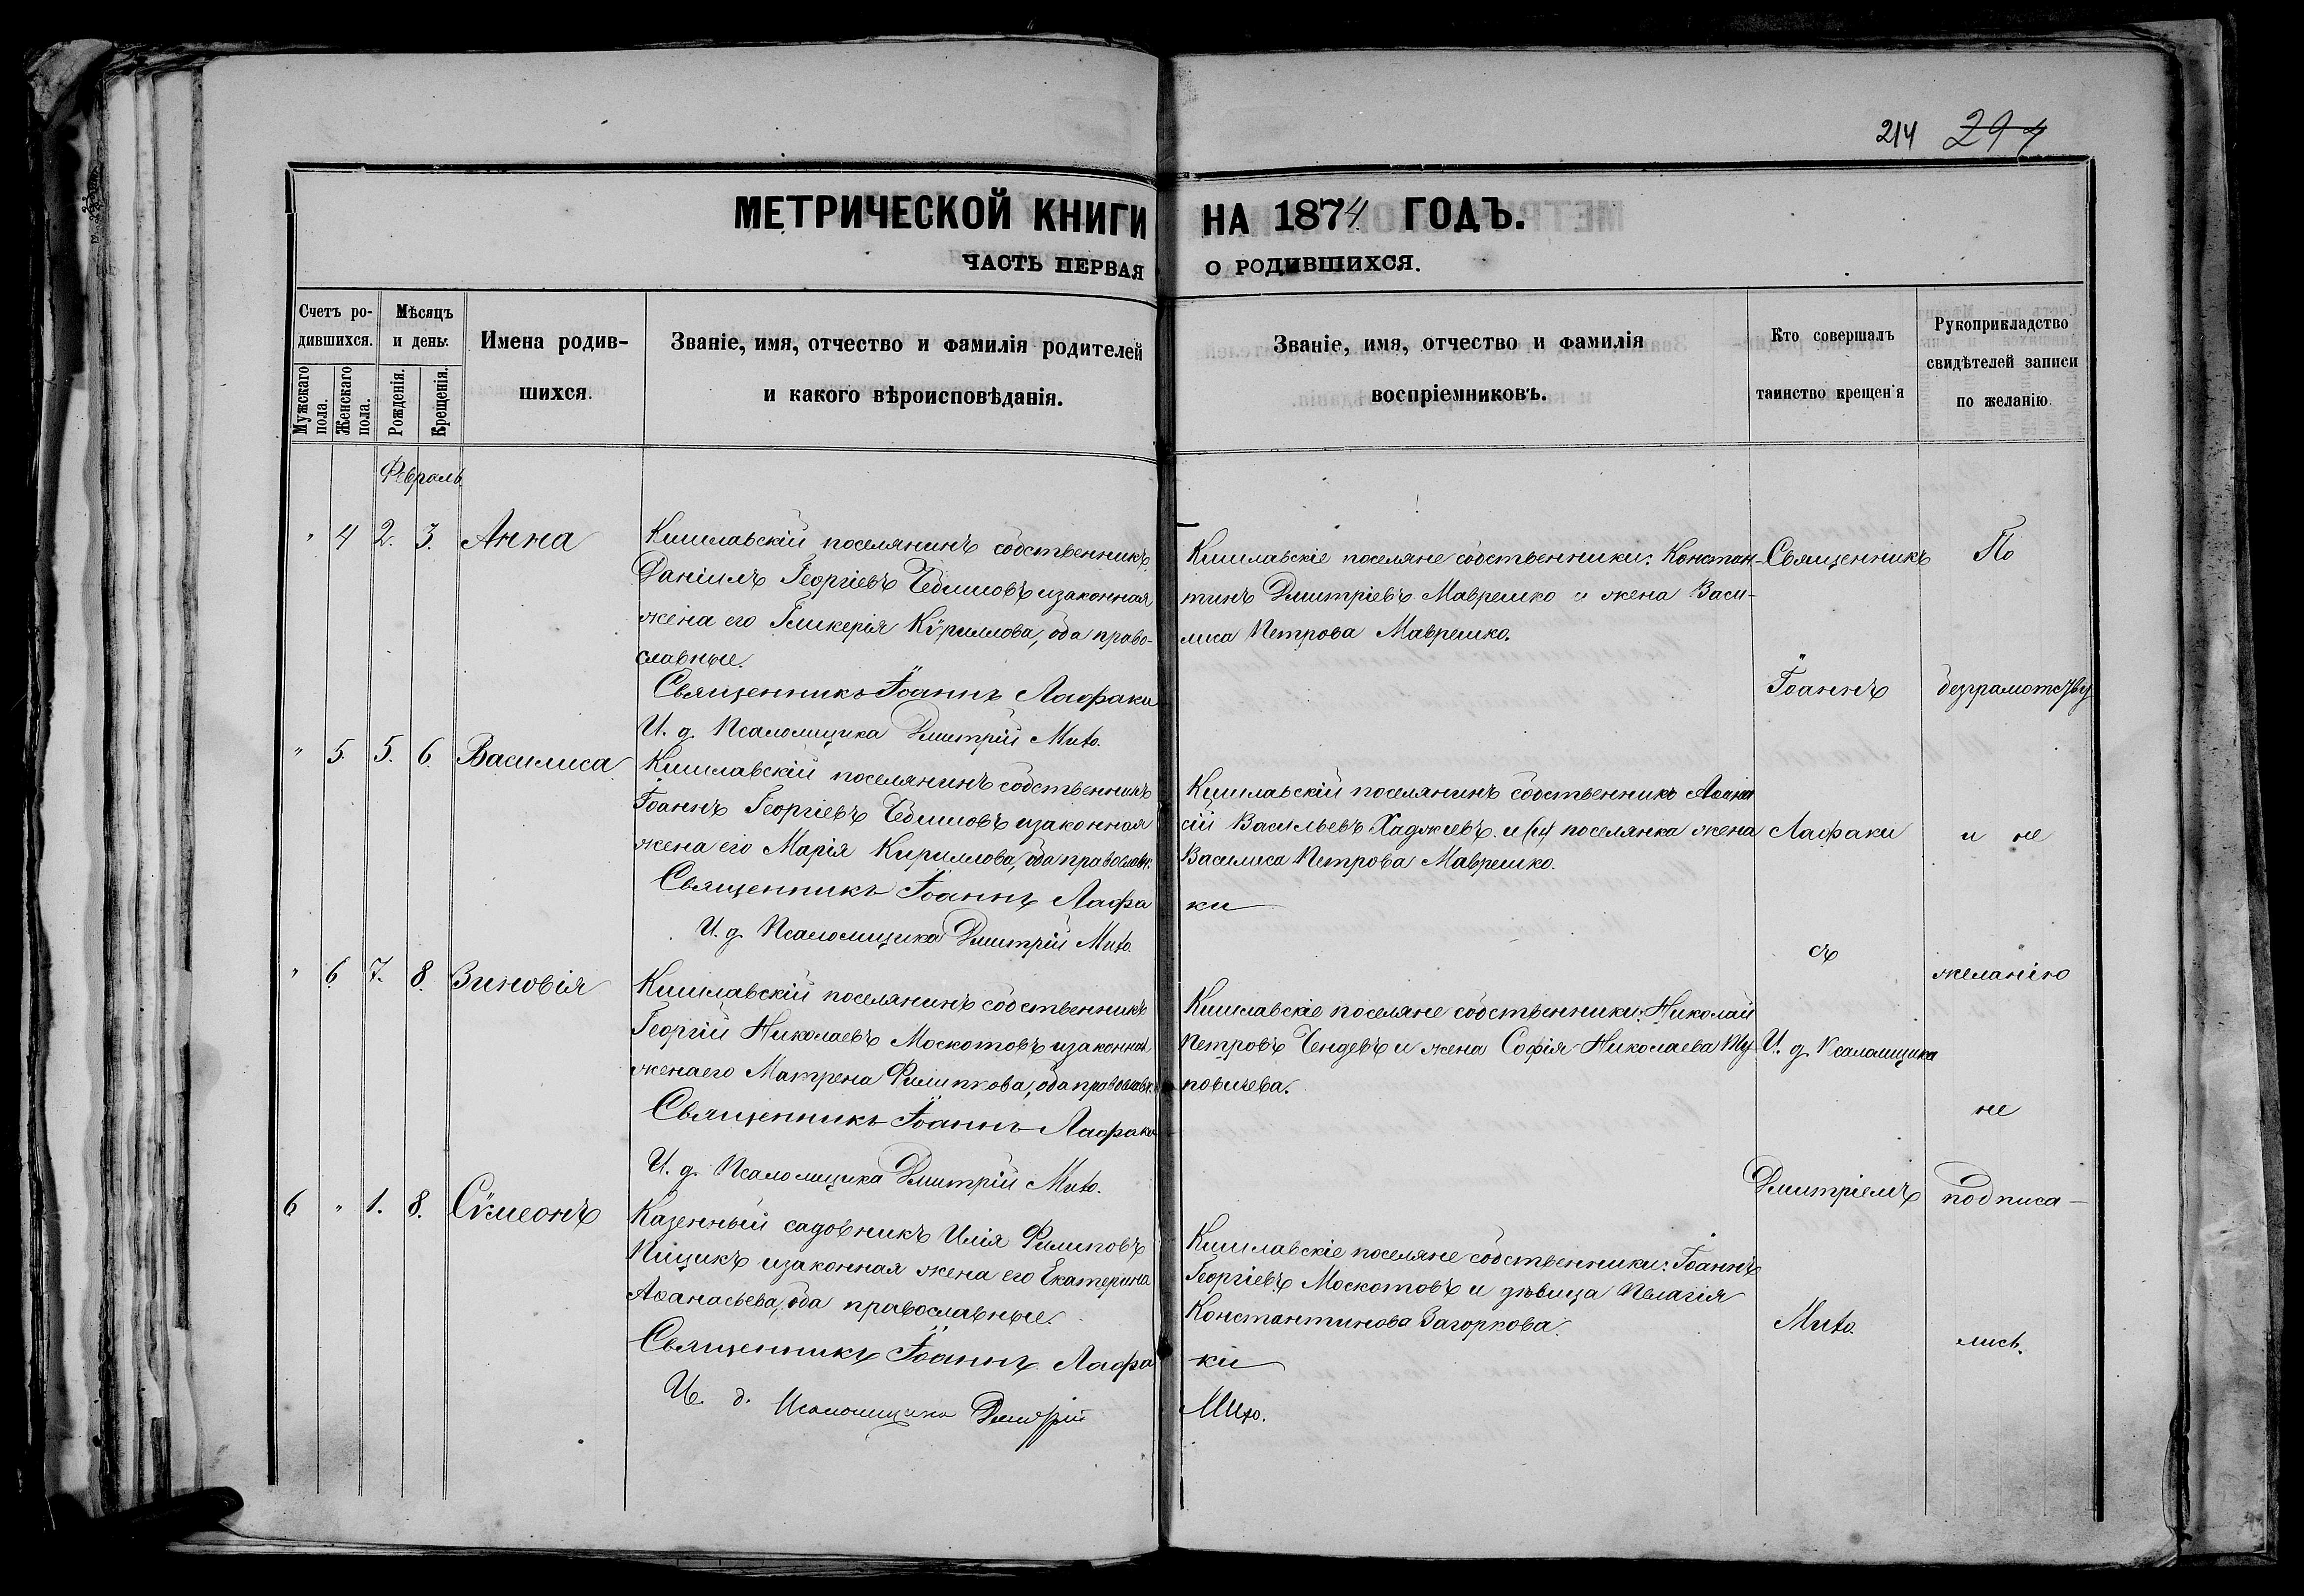 214 294
МЕТРИЧЕСКОЙ КНИГИ НА 1874 ГОДЪ.
ЧАСТЬ ПЕРВАЯ О РОДИВШИХСЯ.
Счетъ ро-
дившихся.
Мужскаго пола.
Женскаго пола.
Мѣсяцъ
и день.
Рожденія.
Крещенія.
Имена родив-
шихся.
Званіе, имя, отчество и фамилія родителей
и какого вѣроисповѣданія.
Званіе, имя, отчество и фамилія
воспріемниковъ.
Кто совершалъ
таинство крещенія
Рукоприкладство
свидѣтелей записи
по желанію.
Февраль
" 4 2. 3. Анна
Кишлавскій поселянинъ собственникъ
Даніилъ Георгіевъ изаконная
жена его Гликерія Кѵриллова, оба право-
славные.
Священникъ Іоаннъ Лафаки
И. д. Псаломщика Дмитрій Мито.
Кишлавскіе поселяне собственники: Констан-
тинъ Дмитріевъ Маврешко и жена Васи-
лиса Петрова Маврешко.
" 5. 5. 6. Василиса
Кишлавскій поселянинъ собственникъ
Іоаннъ Георгіевъ изаконная
жена его Марія Кириллова, оба православн.
Священникъ Іоаннъ Лафа
ки
И. д. Псаломщика Дмитрій Мито.
Кишлавскій поселянинъ собственникъ Аѳана
сій Васильевъ Хаджіевъ и поселянка жена
Василиса Петрова Маврешко.
" 6. 7. 8. Зиновія
Кишлавскій поселянинъ собственникъ
Георгій Николаевъ Москотовъ изаконная
женаего Матрена Филипкова, оба православн.
Священникъ Іоаннъ Лафаки
И. д. Псаломщика Дмитрій Мито.
Кишлавскіе поселяне собственники: Николай
Петровъ Чендевъ и жена Софія Николаева
повичева.
6 " 1. 8. Сѵмеонъ
Казенный садовникъ Илія Филиповъ
Пищикъ изаконная жена его Екатерина
Аѳанасьева, оба православные.
Священникъ Іоаннъ Лафа
ки
И. д. Псаломщика Дмитрій
Мито.
Кишлавскіе поселяне собственники: Іоаннъ
Георгіевъ Москотовъ и дѣвица Пелагія
Константинова Загоркова.
Священникъ
Іоаннъ
Лафаки
съ
И. д. Псаломщика
Дмитріемъ
Мито.
По
безграмотству
и не
желанію
не
подписа-
лись.